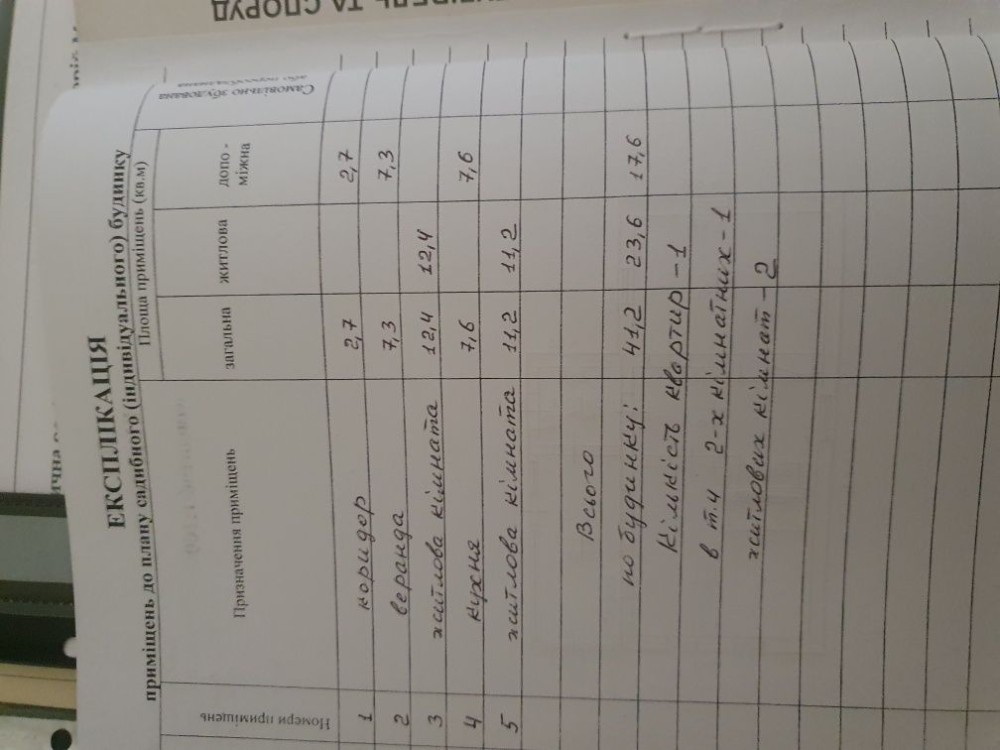 ТА СПОРУД
ЕКСПЛІКАЦІЯ
приміщень до плану садибного (індивідуального) будинку
Номери приміщень
Призначення приміщень
Площа приміщень (кв.м)
загальна
житлова
допо-
міжна
Самовільно збудована
або переобладнана
1 коридор 2,7 2,7
2 веранда 7,3 7,3
3 житлова кімната 12,4 12,4
4 кухня 7,6 7,6
5 житлова кімната 11,2 11,2
Всього
по будинку: 41,2 23,6 17,6
Кількість квартир - 1
в т.ч 2-х кімнатних - 1
житлових кімнат - 2